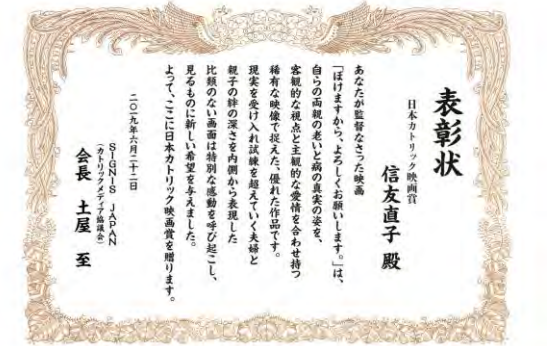 表彰状
日本カトリック映画賞
信友直子 殿
あなたが監督なさった映画
「ぼけますから、よろしくお願いします。」は、
自らの両親の老いと病の真実の姿を、
客観的な視点と主観的な愛情を合わせ持つ
稀有な映像で捉えた、優れた作品です。
現実を受け入れ試練を超えていく夫婦と
親子の絆の深さを内側から表現した
比類のない画面は特別な感動を呼び起こし、
見るものに新しい希望を与えました。
よって、ここに日本カトリック映画賞を贈ります。
二〇一九年六月二十二日
SIGNIS JAPAN
(カトリックメディア協議会)
会長 土屋 至